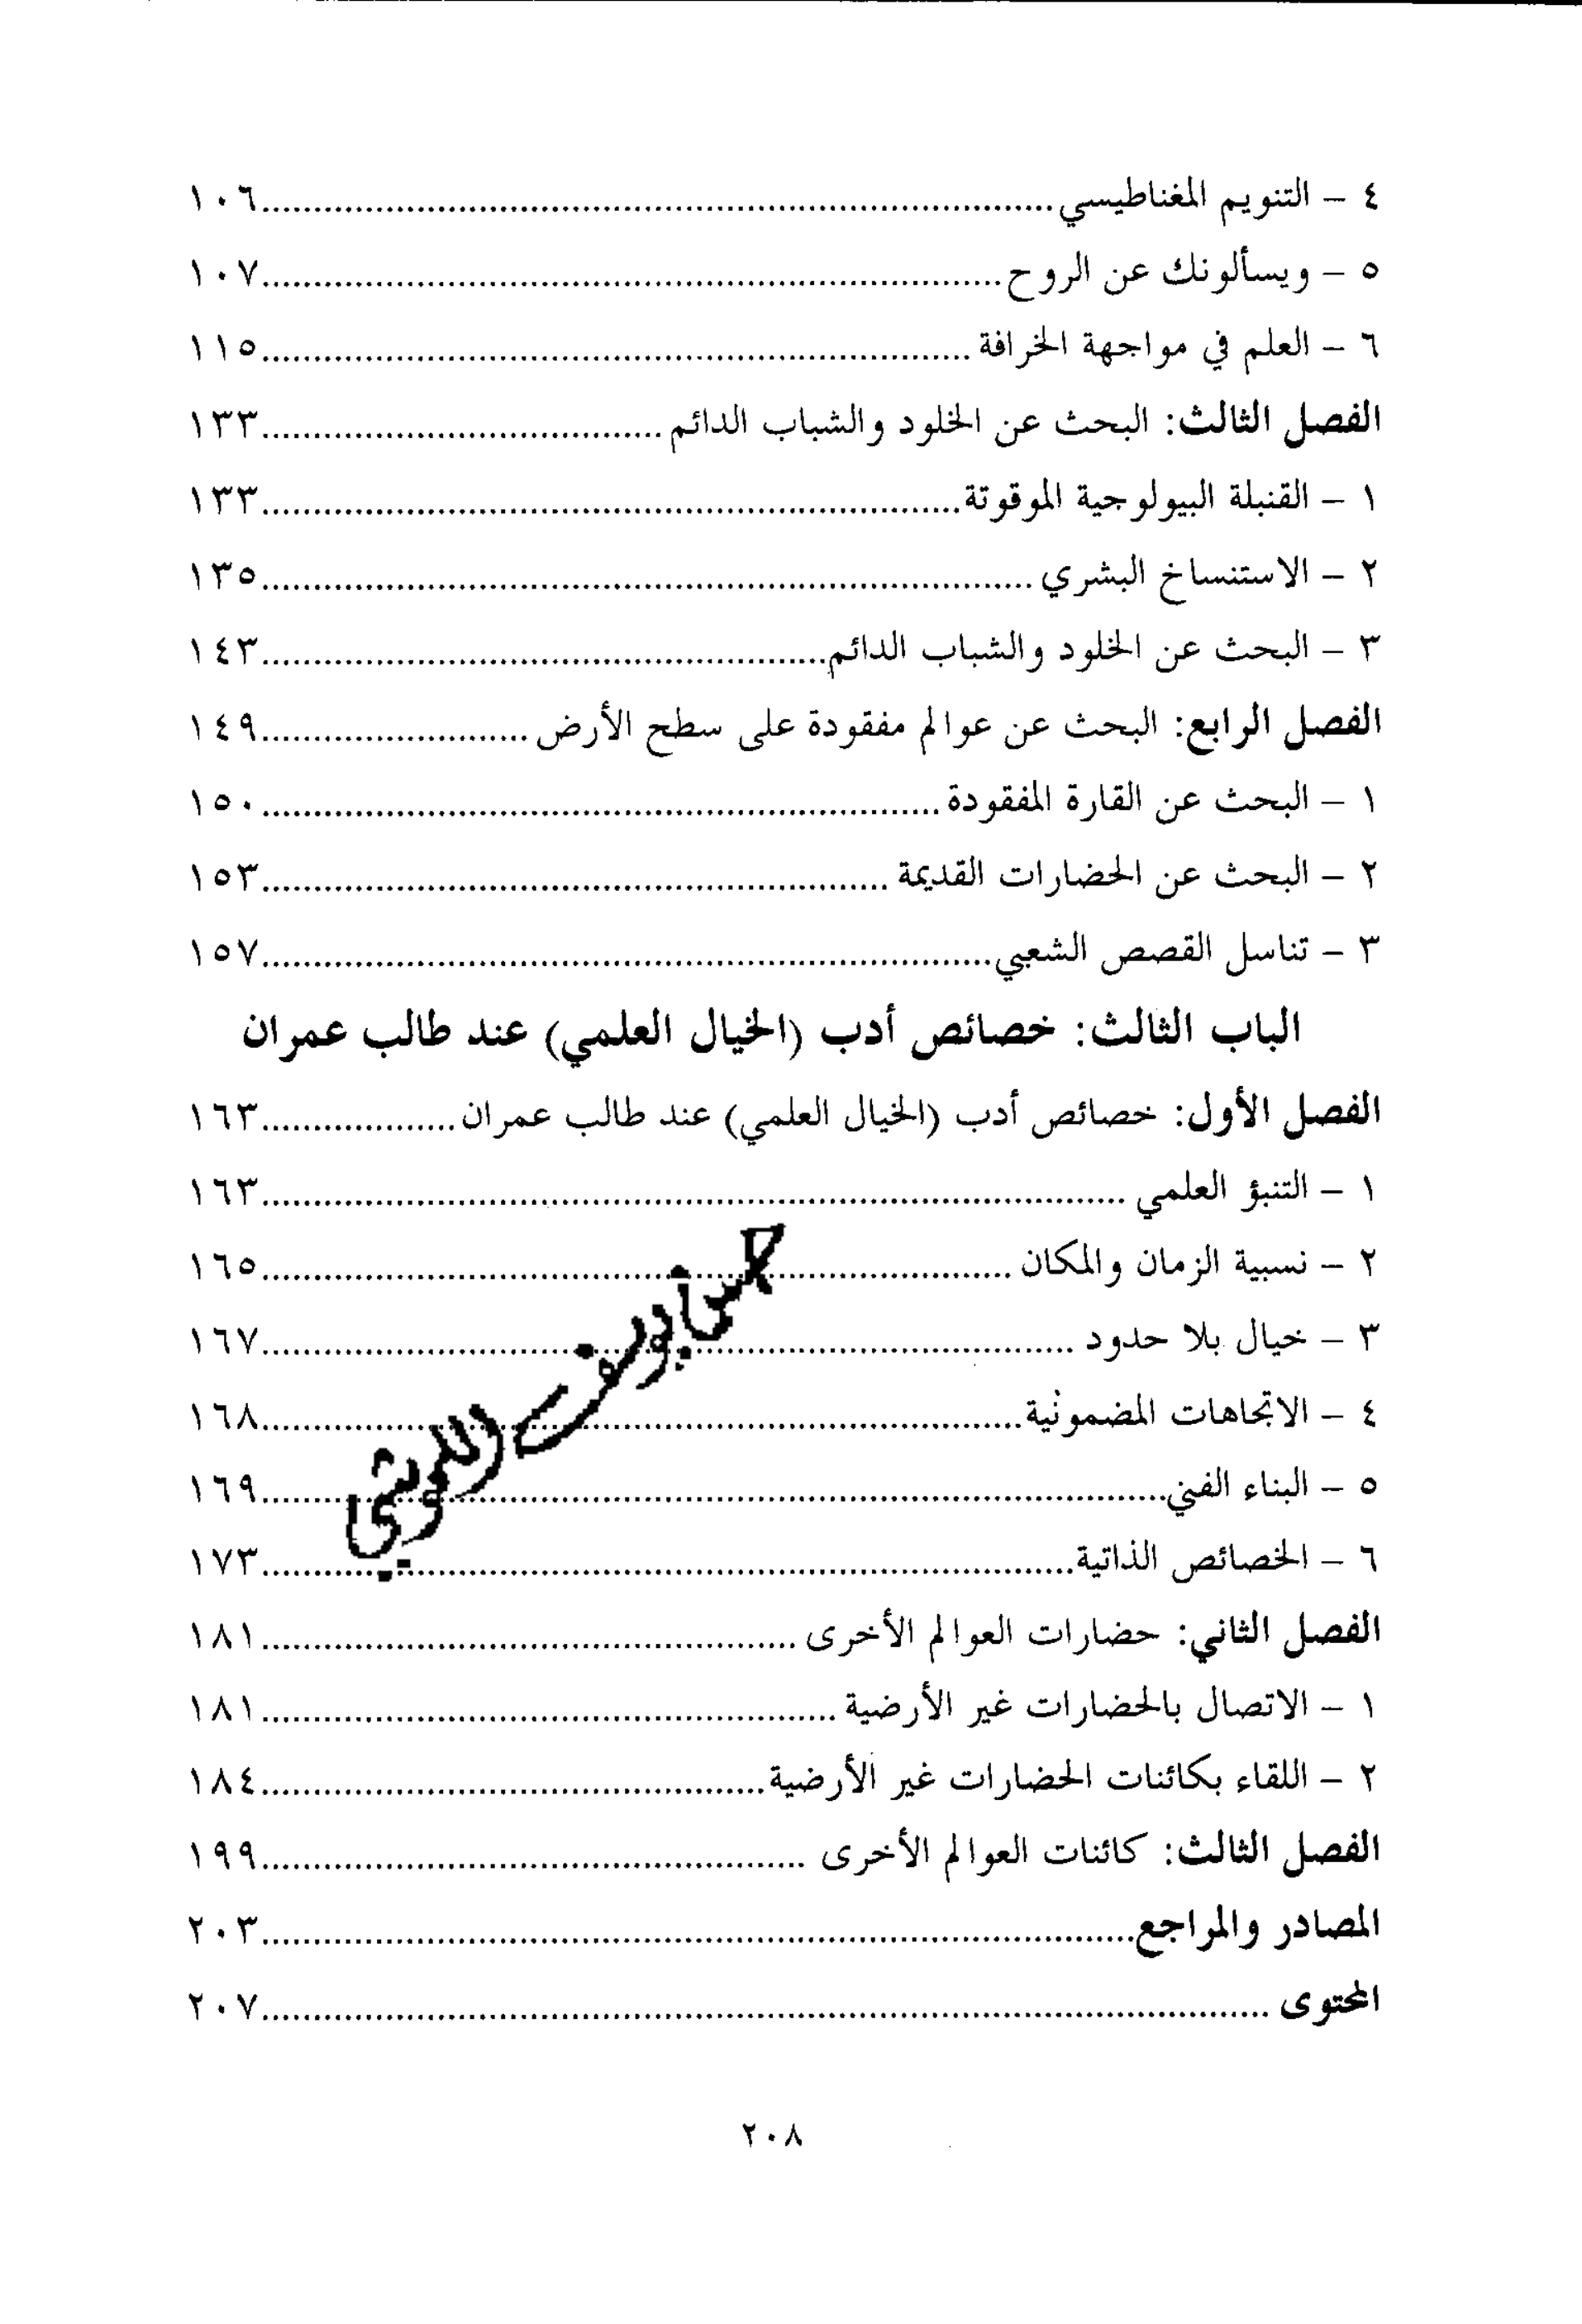 ٤ – التنويم المغناطيسي................................................١٠٦
٥ – ويسألونك عن الروح................................................١٠٧
٦ – العلم في مواجهة الخرافة................................................١١٥
الفصل الثالث: البحث عن الخلود والشباب الدائم................................١٣٣
١ – القنبلة البيولوجية الموقوتة................................................١٣٣
٢ – الاستنساخ البشري................................................١٣٥
٣ – البحث عن الخلود والشباب الدائم........................................١٤٣
الفصل الرابع: البحث عن عوالم مفقودة على سطح الأرض........................١٤٩
١ – البحث عن القارة المفقودة................................................١٥٠
٢ – البحث عن الحضارات القديمة................................................١٥٣
٣ – تناسل القصص الشعبي................................................١٥٧
الباب الثالث: خصائص أدب (الخيال العلمي) عند طالب عمران
الفصل الأول: خصائص أدب (الخيال العلمي) عند طالب عمران...................١٦٣
١ – التنبؤ العلمي................................................١٦٣
٢ – نسبية الزمان والمكان................................................١٦٥
٣ – خيال بلا حدود................................................١٦٧
٤ – الاتجاهات المضمونية................................................١٦٨
٥ – البناء الفني................................................١٦٩
٦ – الخصائص الذاتية................................................١٧٣
الفصل الثاني: حضارات العوالم الأخرى........................................١٨١
١ – الاتصال بالحضارات غير الأرضية........................................١٨١
٢ – اللقاء بكائنات الحضارات غير الأرضية....................................١٨٤
الفصل الثالث: كائنات العوالم الأخرى........................................١٩٩
المصادر والمراجع................................................٢٠٣
المحتوى................................................٢٠٧
٢٠٨